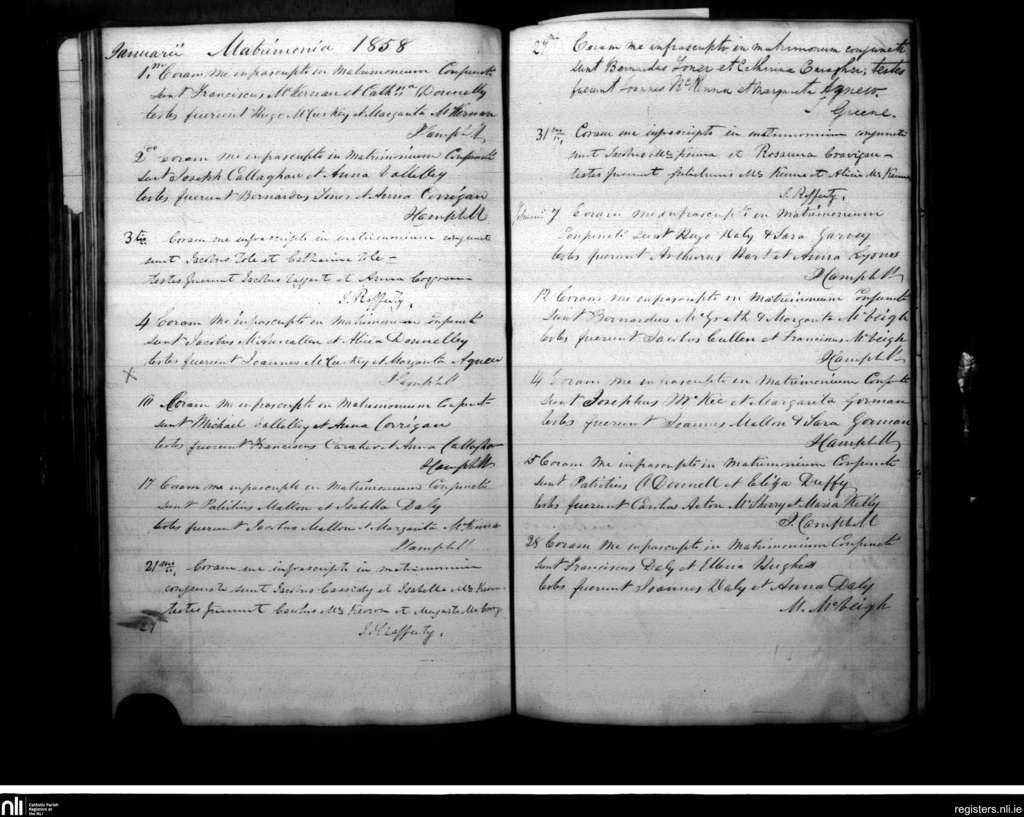 Januarii Matrimonia 1858
1. Coram me infrascripto in Matrimonium Conjuncti
sunt Franciscus McKernan et Cath Donnelly
testes fuerunt Hugo McCuskey et Margarita McKernan
J Campbell
2 Coram me infrascripto in Matrimonium Conjuncti
sunt Joseph Callaghan et Anna Vallelley
testes fuerunt Bernardus Toner et Anna Corrigan
J Campbell
3 Coram me infrascripto in matrimonium conjuncti
sunt Jacobus Tole et Catharina Tole
testes fuerunt Jacobus Taggert et Anna
J. Rafferty.
4 Coram Me infrascripto in Matrimonium Conjuncti
sunt Jacobus et Alicia Donnelley
testes fuerunt Joannes McCuskey et Margarita Agnew
J Campbell
X
10 Coram me infrascripto in Matrimonium Conjuncti
sunt Michael Vallelley et Anna Corrigan
testes fuerunt Franciscus Caraher et Anna Callaghan
J Campbell
17 Coram me infrascripto in Matrimonium Conjuncti
sunt Patritius Mallon et Isabella Daly
testes fuerunt Jacobus Mallon et Margarita McKenna
J Campbell
21 Coram me infrascripto in matrimonium
conjuncti sunt Jacobus Cassidy et Isabella McKeown
testes fuerunt Carolus McKeown et Margarita
J. Rafferty.
27
27 Coram me infrascripto in matrimonium conjuncti
sunt Bernardus Toner et Caragher; testes
fuerunt Joannes McKenna et Margarita Agnew
Greene.
31 Coram me infrascripto in matrimonium conjuncti
sunt Jacobus McKenna et Rossanna
testes fuerunt McKenna et Alicia McKenna
J. Rafferty.
7 Coram me infrascripto in Matrimonium
Conjuncti sunt Hugo Daly & Sara Garvey
testes fuerunt Arthurus Hart et Anna Lyones
J Campbell
12 Coram me infrascripto in Matrimonium Conjuncti
sunt Bernardus McGrath & Margarita McVeigh
testes fuerunt Jacobus Cullen et Franciscus McVeigh
J Campbell
14 Coram me infrascripto in Matrimonium Conjuncti
sunt Josephus McKee et Margarita Gorman
testes fuerunt Joannes Mallon & Sara Gorman
J Campbell
15 Coram Me infrascripto in Matrimonium Conjuncti
sunt Patritius O Donnell et Eliza Duffy
testes fuerunt Carolus McSherry et Maria Kelly
J. Campbell
28 Coram Me infrascripto in Matrimonium Conjuncti
sunt Franciscus Daly et Ellena Hughes
testes fuerunt Joannes Daly et Anna Daly
M. McVeigh
nli Catholic Parish
Registers at
the NLI
registers.nli.ie